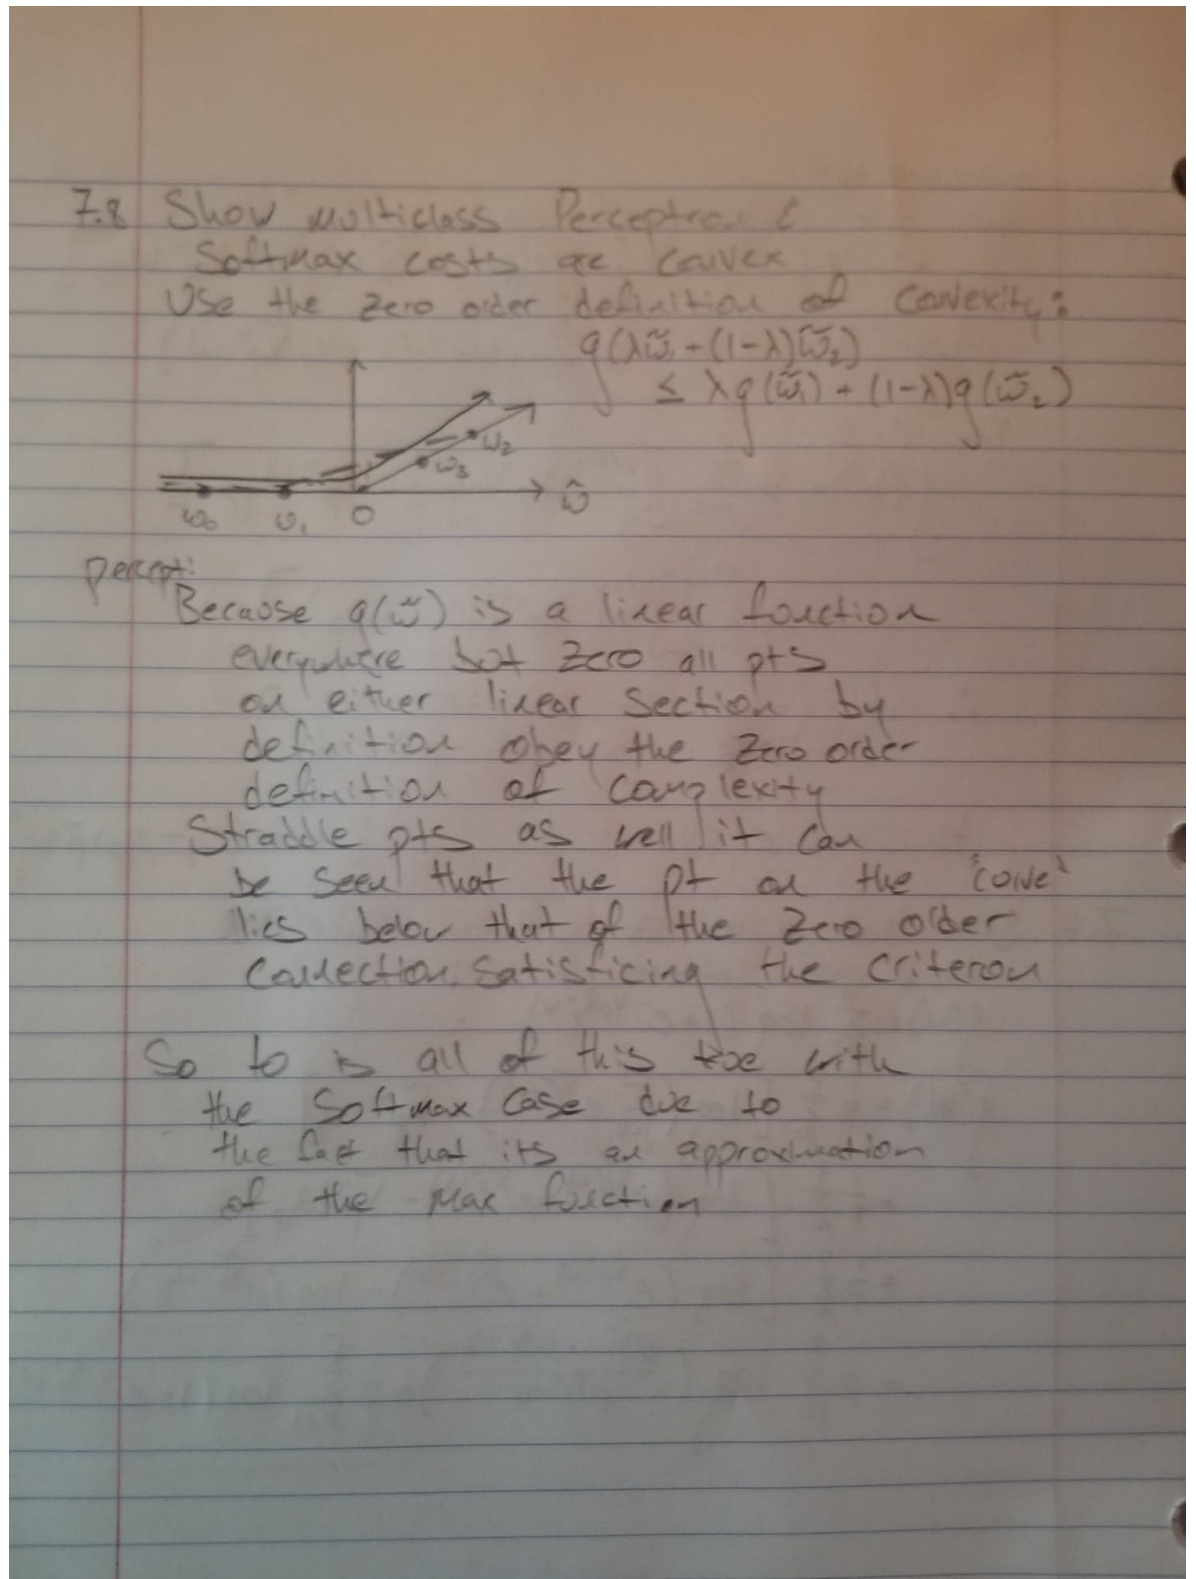 7.8 Show multiclass Perceptron &
Softmax costs are convex
Use the zero order definition of convexity:
g(λw̃₁ + (1-λ)w̃₂)
≤ λg(w̃₁) + (1-λ)g(w̃₂)
w₂
w₃
w₀ w₁ 0 w̃
percept:
Because g(w̃) is a linear function
everywhere but zero all pts
on either linear section by
definition obey the zero order
definition of complexity
Straddle pts as well it can
be seen that the pt on the 'curve'
lies below that of the zero order
connection. satisficing the criteron
So to is all of this true with
the Softmax case due to
the fact that its an approximation
of the Max function